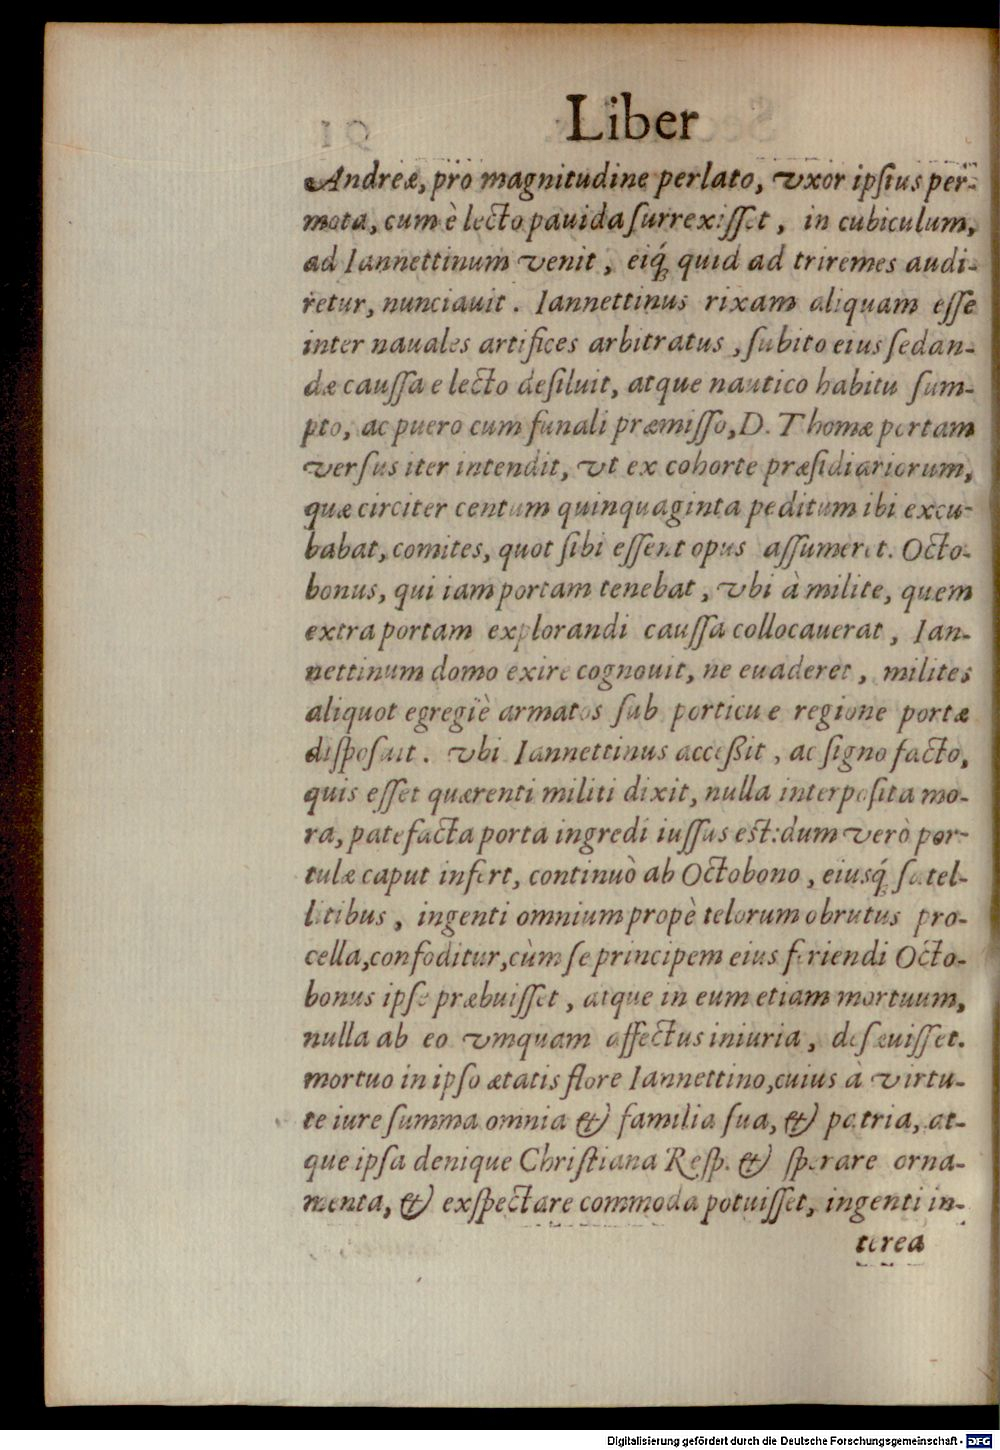 Liber
Andreæ, pro magnitudine perlato, vxor ipſius per-
mota, cum è lecto pauida ſurrexiſſet, in cubiculum,
ad Iannettinum venit, eiq́; quid ad triremes audi-
retur, nunciauit. Iannettinus rixam aliquam eſſe
inter nauales artifices arbitratus, ſubito eius ſedan-
dæ cauſſa e lecto deſiluit, atque nautico habitu ſum-
pto, ac puero cum funali præmiſſo, D. Thomæ portam
verſus iter intendit, vt ex cohorte præſidiariorum,
quæ circiter centum quinquaginta peditum ibi excu-
babat, comites, quot ſibi eſſent opus aſſumeret. Octo-
bonus, qui iam portam tenebat, vbi à milite, quem
extra portam explorandi cauſſa collocauerat, Ian-
nettinum domo exire cognouit, ne euaderet, milites
aliquot egregiè armatos ſub porticu e regione portæ
diſpoſuit. vbi Iannettinus acceßit, ac ſigno facto,
quis eſſet quærenti militi dixit, nulla interpoſita mo-
ra, patefacta porta ingredi iuſſus eſt: dum verò por-
tulæ caput infert, continuò ab Octobono, eiusq́; ſatel-
litibus, ingenti omnium propè telorum obrutus pro-
cella, confoditur, cùm ſe principem eius feriendi Octo-
bonus ipſe præbuiſſet, atque in eum etiam mortuum,
nulla ab eo vmquam affectus iniuria, deſæuiſſet.
mortuo in ipſo ætatis flore Iannettino, cuius à virtu-
te iure ſumma omnia & familia ſua, & patria, at-
que ipſa denique Chriſtiana Reſp. & ſperare orna-
menta, & exſpectare commoda potuiſſet, ingenti in-
terea
Digitalisierung gefördert durch die Deutsche Forschungsgemeinschaft - DFG